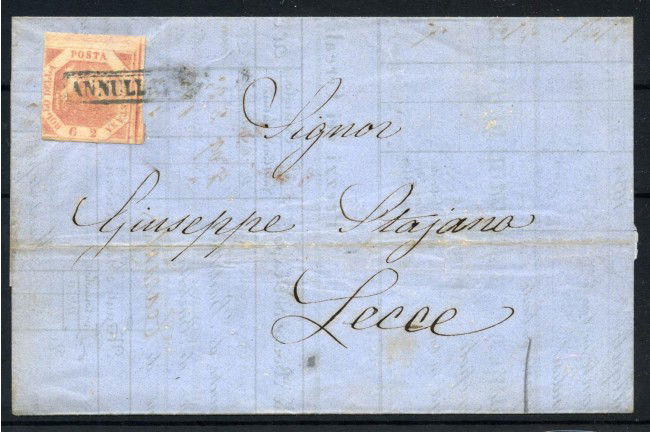 POSTA
ANNULL
G 2
Signor
Giuseppe Stajano
Lecce